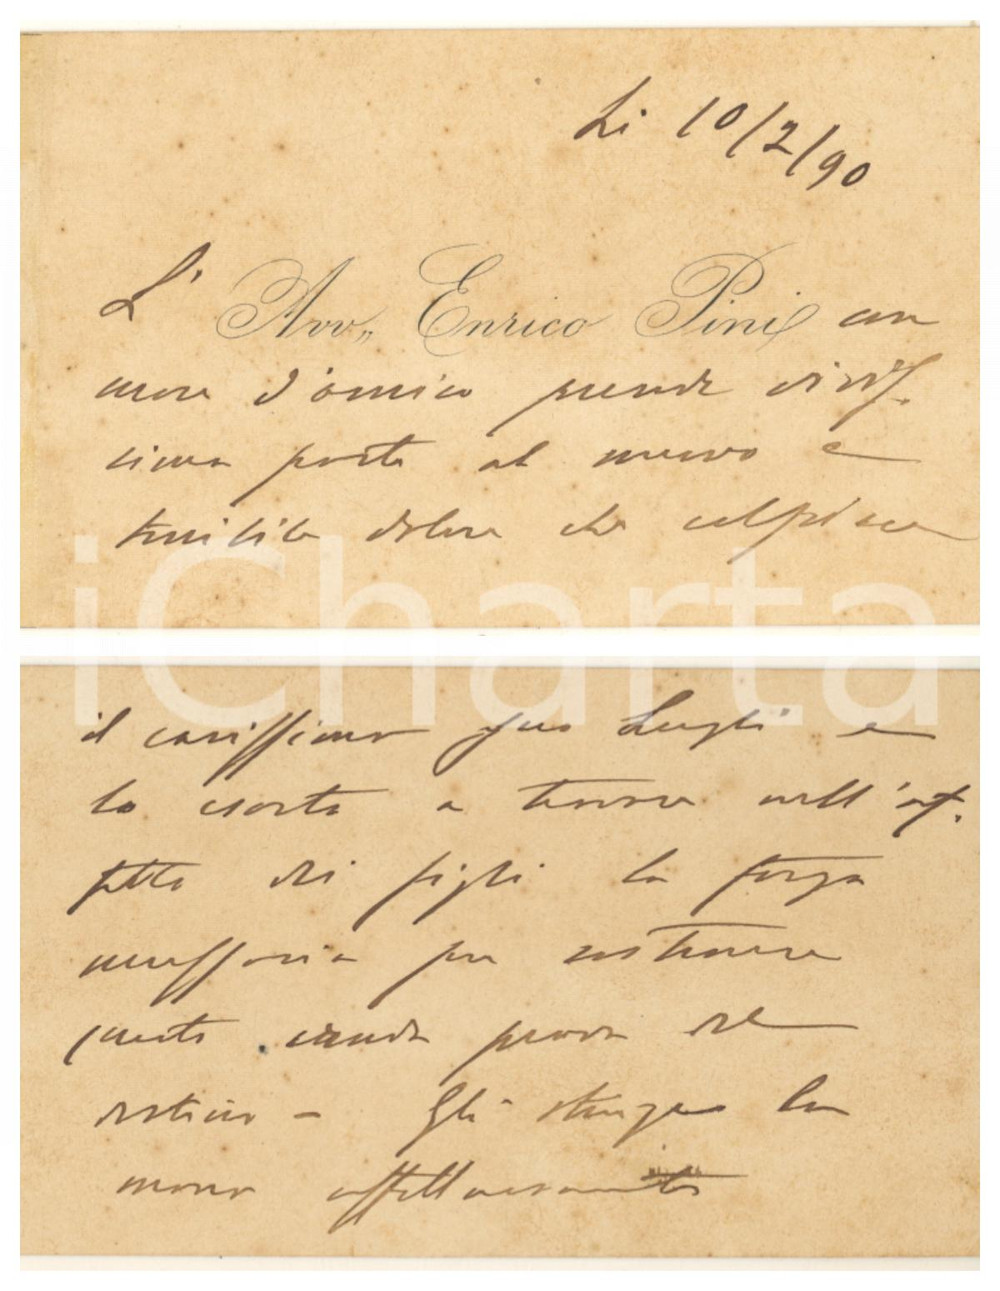 Li 10/2/90
L' Avv. Enrico Pini con
cuore d'amico prende vivis-
sima parte al nuovo e
terribile dolore che colpisce
il carissimo suo Luigi e
lo esorta a trovare nell'af-
fetto dei figli la forza
necessaria per sostenere
questa cruda prova del
destino - Gli stringe la
mano affettuosamente
iCharta